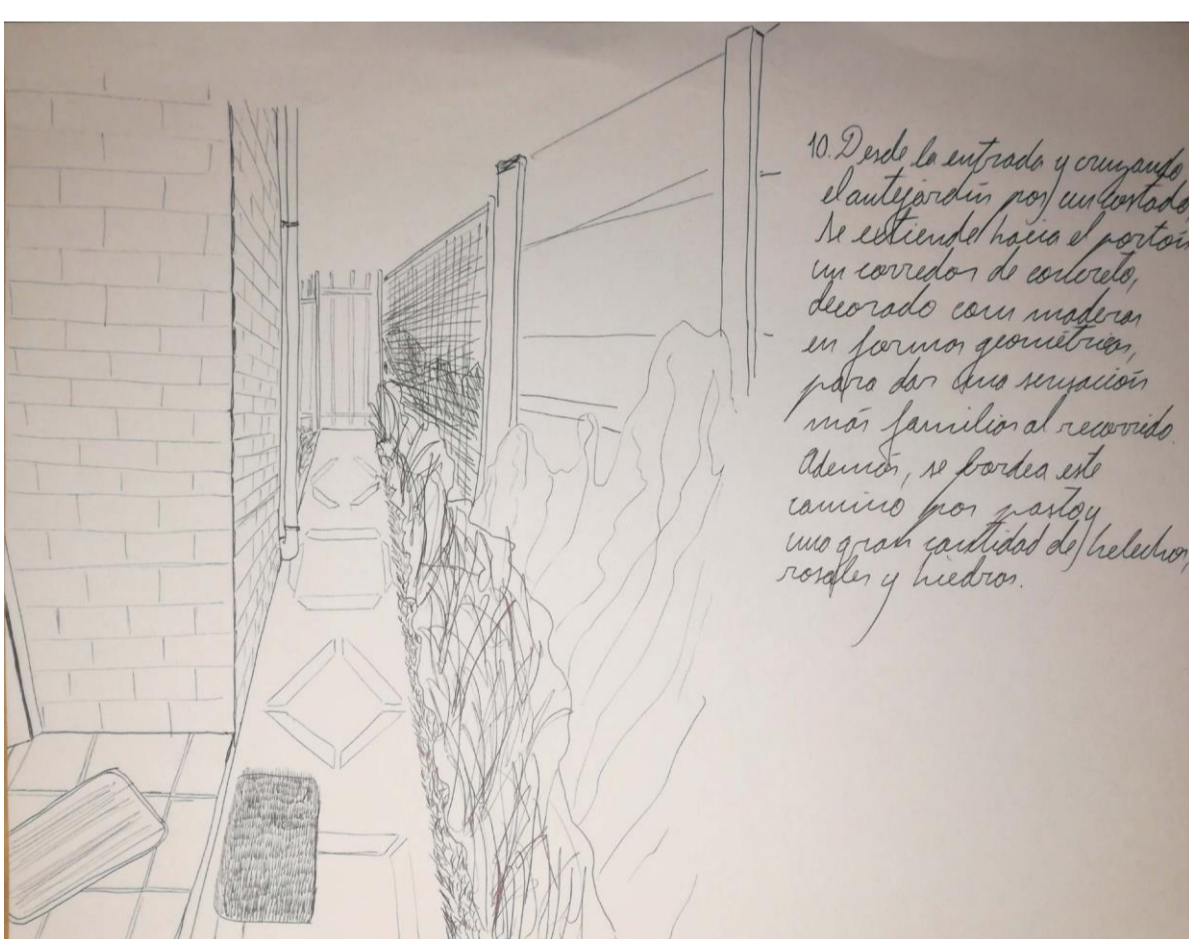 10. Desde la entrada y cruzando
el antejardín por un costado
se extiende hacia el portón
un corredor de concreto,
decorado con maderas
en formas geométricas,
para dar una sensación
más familiar al recorrido.
Además, se bordea este
camino por pasto y
una gran cantidad de helechos,
rosales y hiedras.